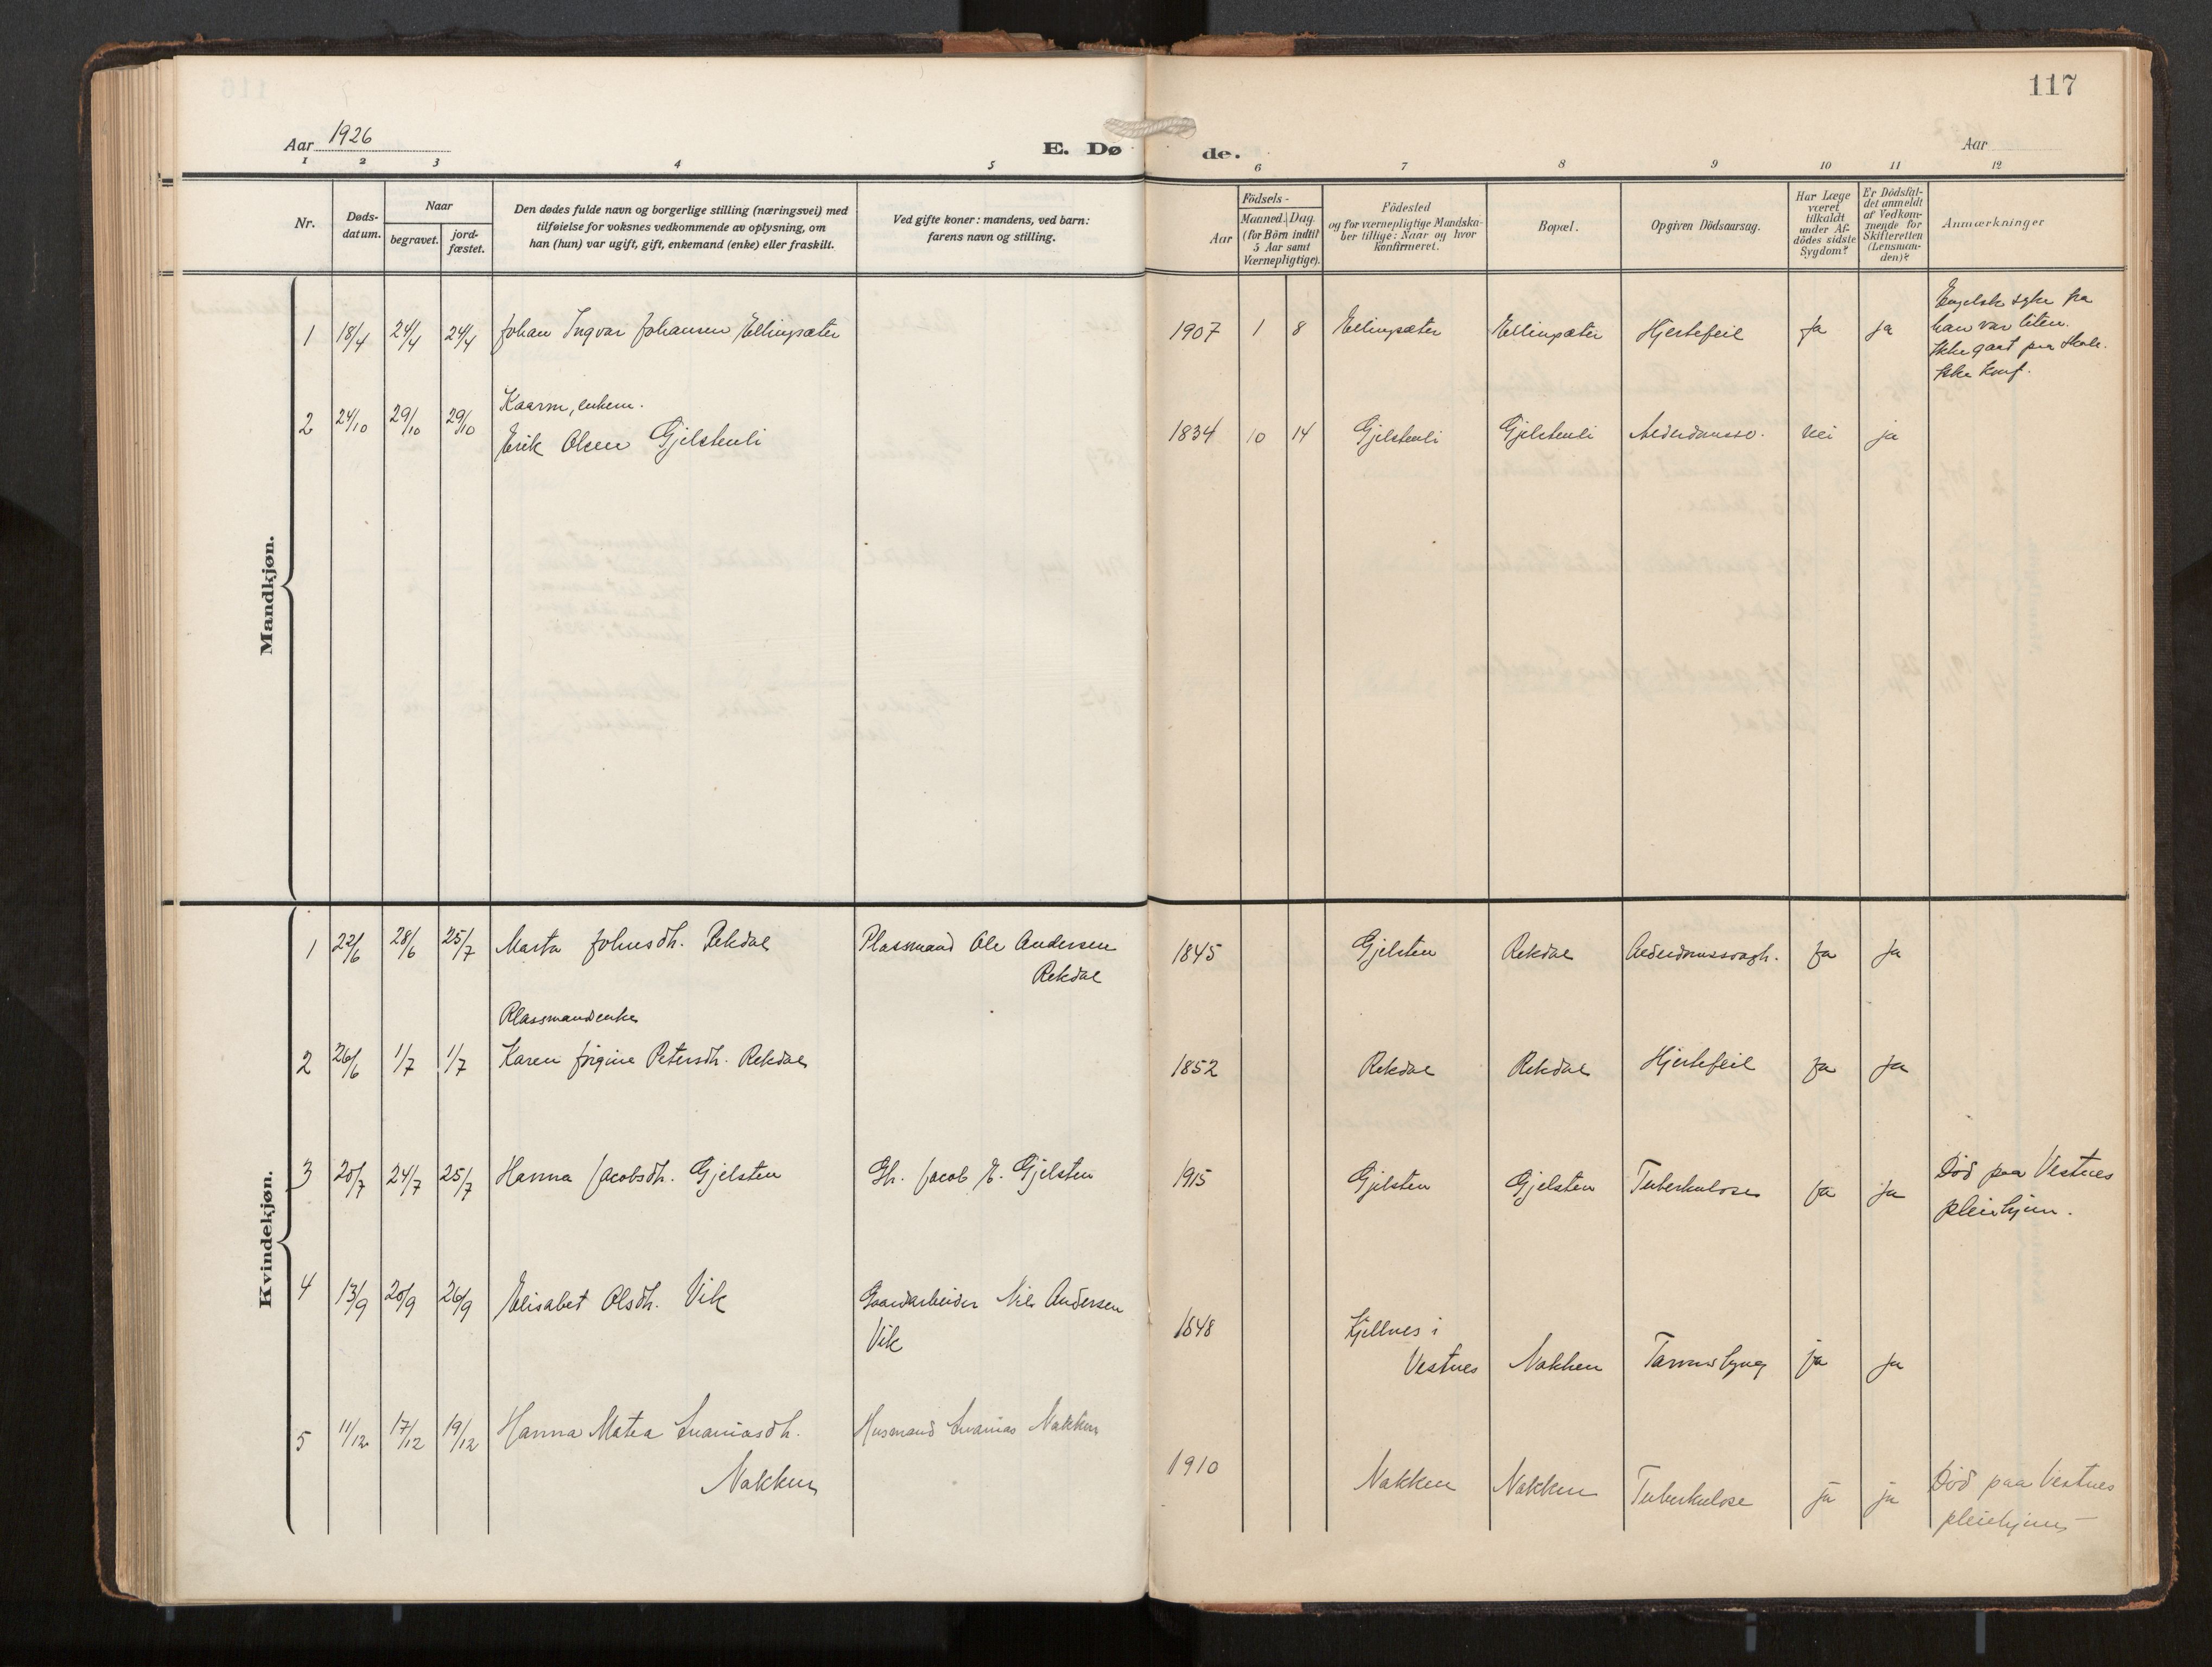 117
Aar 1926
E. Dø
de.
Aar
1 2 3 4 5 6 7 8 9 10 11 12
Nr.
Døds-
datum.
Naar
begravet.
jord-
fæstet.
Den dødes fulde navn og borgerlige stilling (næringsvei) med
tilføielse for voksnes vedkommende av oplysning, om
han (hun) var ugift, gift, enkemand (enke) eller fraskilt.
Ved gifte koner: mandens, ved barn:
farens navn og stilling.
Aar
Födsels-
Maaned. Dag.
(for Börn indtil
5 Aar samt
Værnepligtige).
Födested
og for værnepligtige Mandska-
ber tillige: Naar og hvor
konfirmeret.
Bopæl.
Opgiven Dödsaarsag.
Har Læge
været
tilkaldt
under Af-
dödes sidste
Sygdom?
Er Dödsfal-
det anmeldt
af Vedkom-
mende for
Skifteretten
(Lensman-
den)?
Anmærkninger
Mandkjøn.
1 18/4 24/4 24/4 Johan Ingvar Johansen Ellingsæter 1907 1 8 Ellingsæter Ellingsæter Hjertefeil Ja ja
Engelsk syke fra
han var liten.
Ikke gaat paa skole.
Ikke konf.
Kaarm, enkem.
2 24/10 29/10 29/10 Erik Olsen Gjelstenli 1834 10 14 Gjelstenli Gjelstenli nei ja
Kvindekjøn.
1 22/6 28/6 25/7 Marta Johnsdh. Rekdal Plassmand Ole Andersen
Rekdal
1845 Gjelsten Rekdal Ja Ja
Plassmandsenke
2 26/6 1/7 1/7 Karen Petersdh. Rekdal 1852 Rekdal Rekdal Hjertefeil Ja Ja
3 20/7 24/7 25/7 Hanna Jacobsdh. Gjelsten Gh. Jacob E. Gjelsten 1915 Gjelsten Gjelsten Tuberkulose Ja Ja
Död paa Vestnes
pleiehjem.
4 13/9 20/9 26/9 Elisabet Olsdh. Vik Gaardarbeider Nils Andersen
Vik
1848 Kjellnes i
Vestnes Nakken Tarmslyng ja Ja
5 11/12 17/12 19/12 Hanna Matea Ananiasdh.
Nakken
Husmand Ananias Nakken
1910 Nakken Nakken Tuberkulose ja ja
Död paa Vestnes
pleiehjem